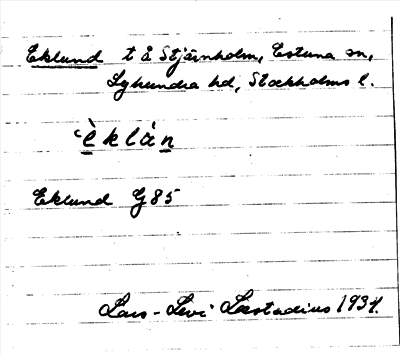 Eklund t å Stjärnholm, Estuna sn,
Lyhundra hd, Stockholms l.
`èklàn
Eklund G 85
Lars-Levi Læstadius 1934.